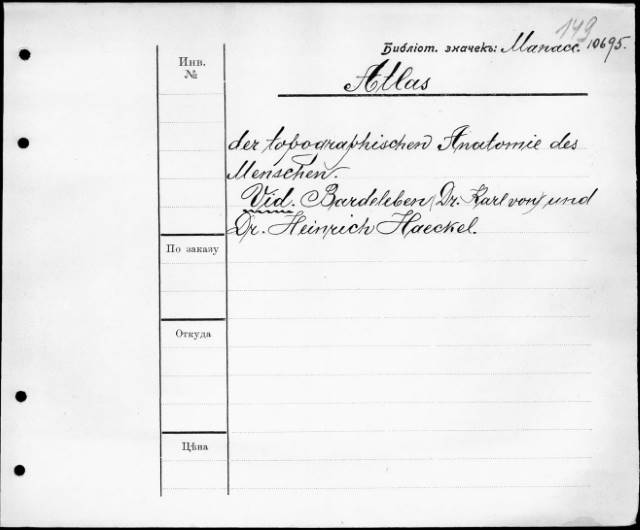 149
Библіот. значекъ: Манасс. 10695.
Инв.
№
Atlas
der topographischen Anatomie des
Menschen.
Vid. Bardeleben, Dr. Karl von, und
Dr. Heinrich Haeckel.
По заказу
Откуда
Цѣна